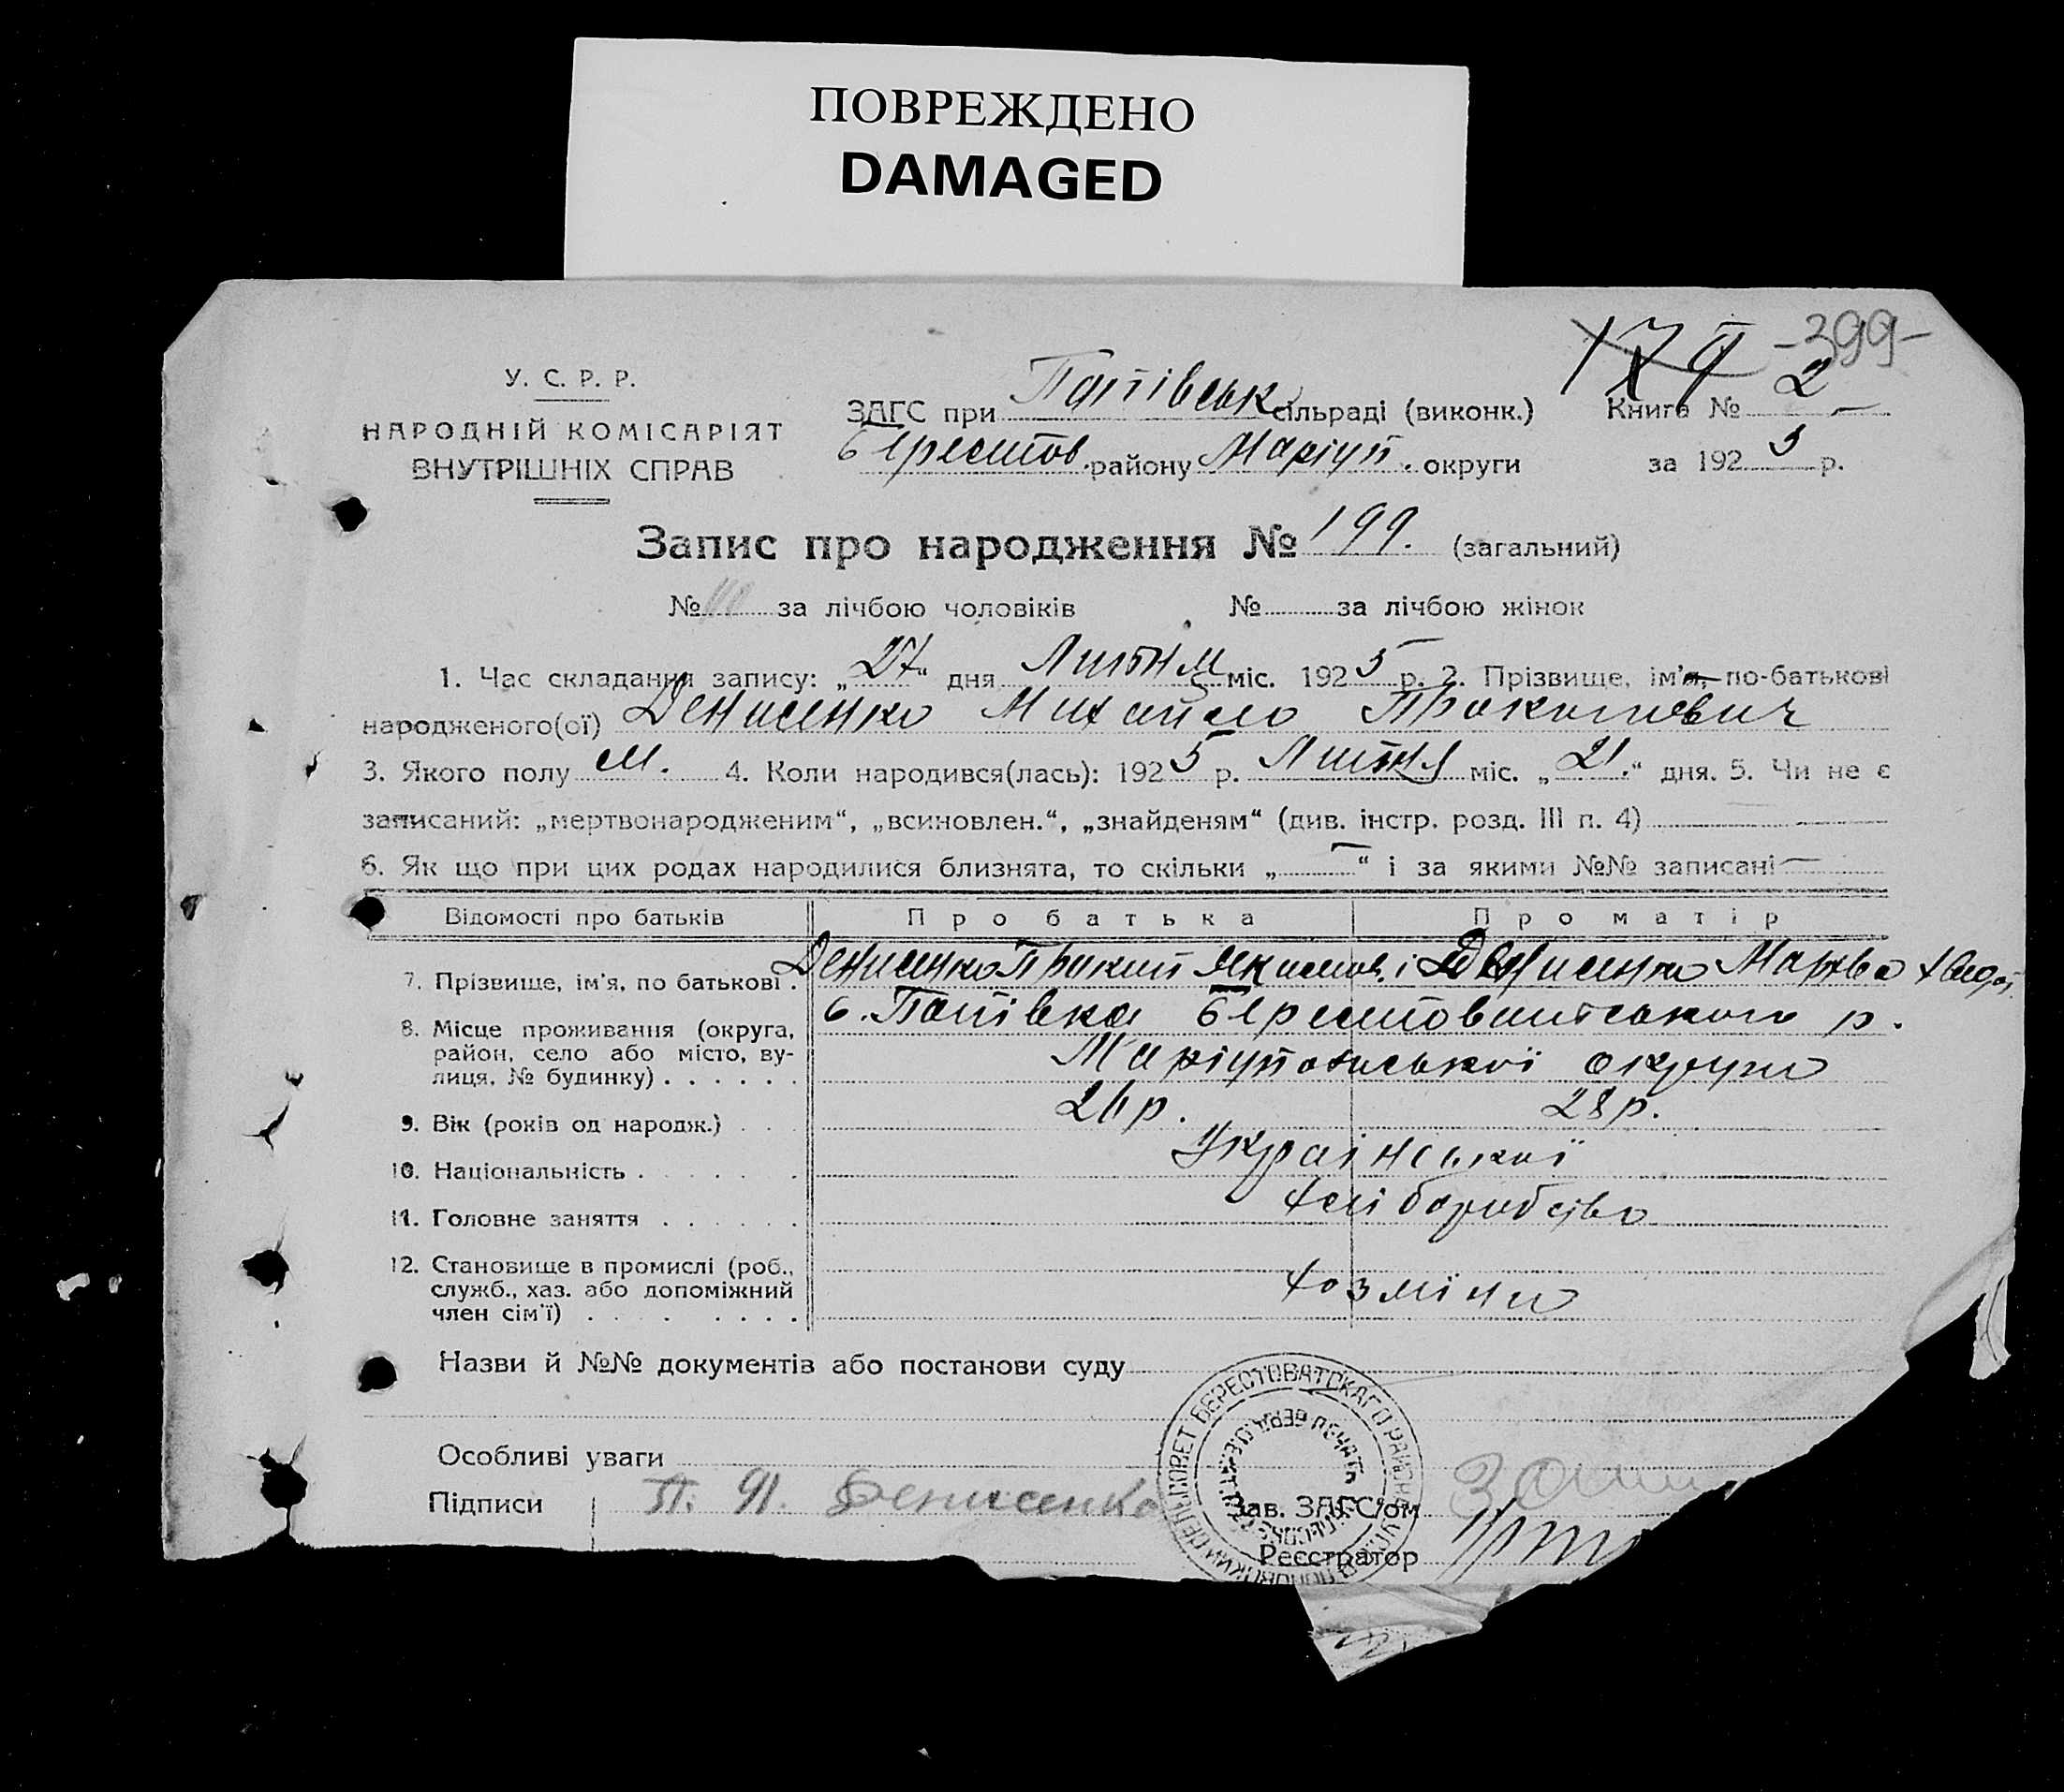 ПОВРЕЖДЕНО
DAMAGED
-399-
У. С. Р. Р.
НАРОДНІЙ КОМІСАРІЯТ
ВНУТРІШНІХ СПРАВ
ЗАГС при Попівськ сільраді (виконк.) Книга № 2
Берестов. району Маріуп. округи за 1925 р.
Запис про народження № 199. (загальний)
№ за лічбою чоловіків № за лічбою жінок
1. Час складання запису: „27“ дня Липня міс. 1925 р. 2. Прізвище, ім'я, по-батькові
народженого(ої) Денисенко Михайло Прокопович
3. Якого полу м. 4. Коли народився(лась): 1925 р. Липня міс. „21.“ дня. 5. Чи не є
записаний: „мертвонародженим“, „всиновлен.“, „знайденям“ (див. інстр. розд. III п. 4)
6. Як що при цих родах народилися близнята, то скільки „—“ і за якими №№ записані —
Відомості про батьків Про батька Про матір
7. Прізвище, ім'я, по батькові . Денисенко Прокип Якимов. і Денисенко Марфа
8. Місце проживання (округа, с. Попівка Берестоватського р.
район, село або місто, ву- Маріупольської округи
лиця, № будинку) . . . . . .
9. Вік (років од народж.) . . . 26 р. 28 р.
10. Національність . . . . . Української
11. Головне заняття . . . . . . хліборобство
12. Становище в промислі (роб.,
служб., хаз. або допоміжний
член сім'ї) . . . . . . . хозяїни
Назви й №№ документів або постанови суду
Особливі уваги
Підписи П. Я. Денисенко Зав. ЗАГС'ом
Реєстратор